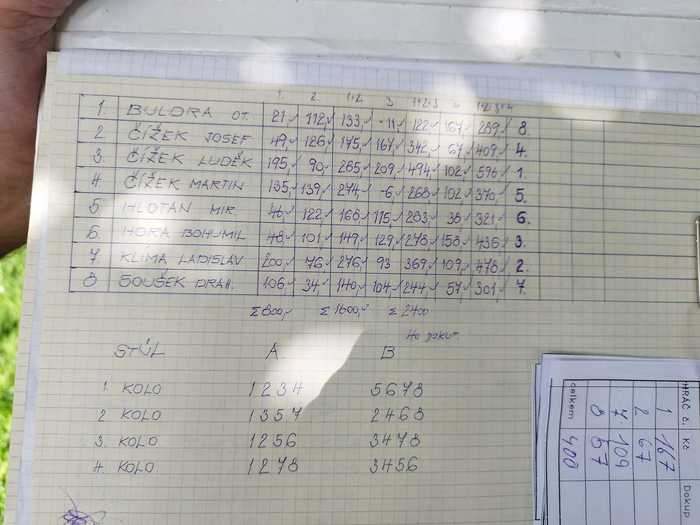 1. 2. 1+2 3 1+2+3 4 1+2+3+4
1. BULDRA OT. 21,- 112,- 133,- -11,- 122,- 167,- 289,- 8.
2 ČÍŽEK JOSEF 49,- 126,- 175,- 167,- 342,- 67,- 409,- 4.
3. ČÍŽEK LUDĚK 195,- 90,- 285,- 209,- 494,- 102,- 596,- 1.
4. ČÍŽEK MARTIN 135,- 139,- 274,- -6,- 268,- 102,- 370,- 5.
5 HLOTAN MIR. 46,- 122,- 168,- 115,- 283,- 38,- 321,- 6.
6 HORA BOHUMIL 48,- 101,- 149,- 129,- 278,- 158,- 436,- 3.
7. KLIMA LADISLAV 200,- 76,- 276,- 93 369,- 109,- 478,- 2.
8 SOUŠEK DRAH. 106,- 34,- 140,- 104,- 244,- 57,- 301,- 7.
Σ 800,- Σ 1600,- Σ 2400
STŮL A B
1. KOLO 1234 5678
2 KOLO 1357 2468
3. KOLO 1256 3478
4. KOLO 1278 3456
HRÁČ č. Kč Dokup
1 167
2 67
7 109
8 57
celkem 400